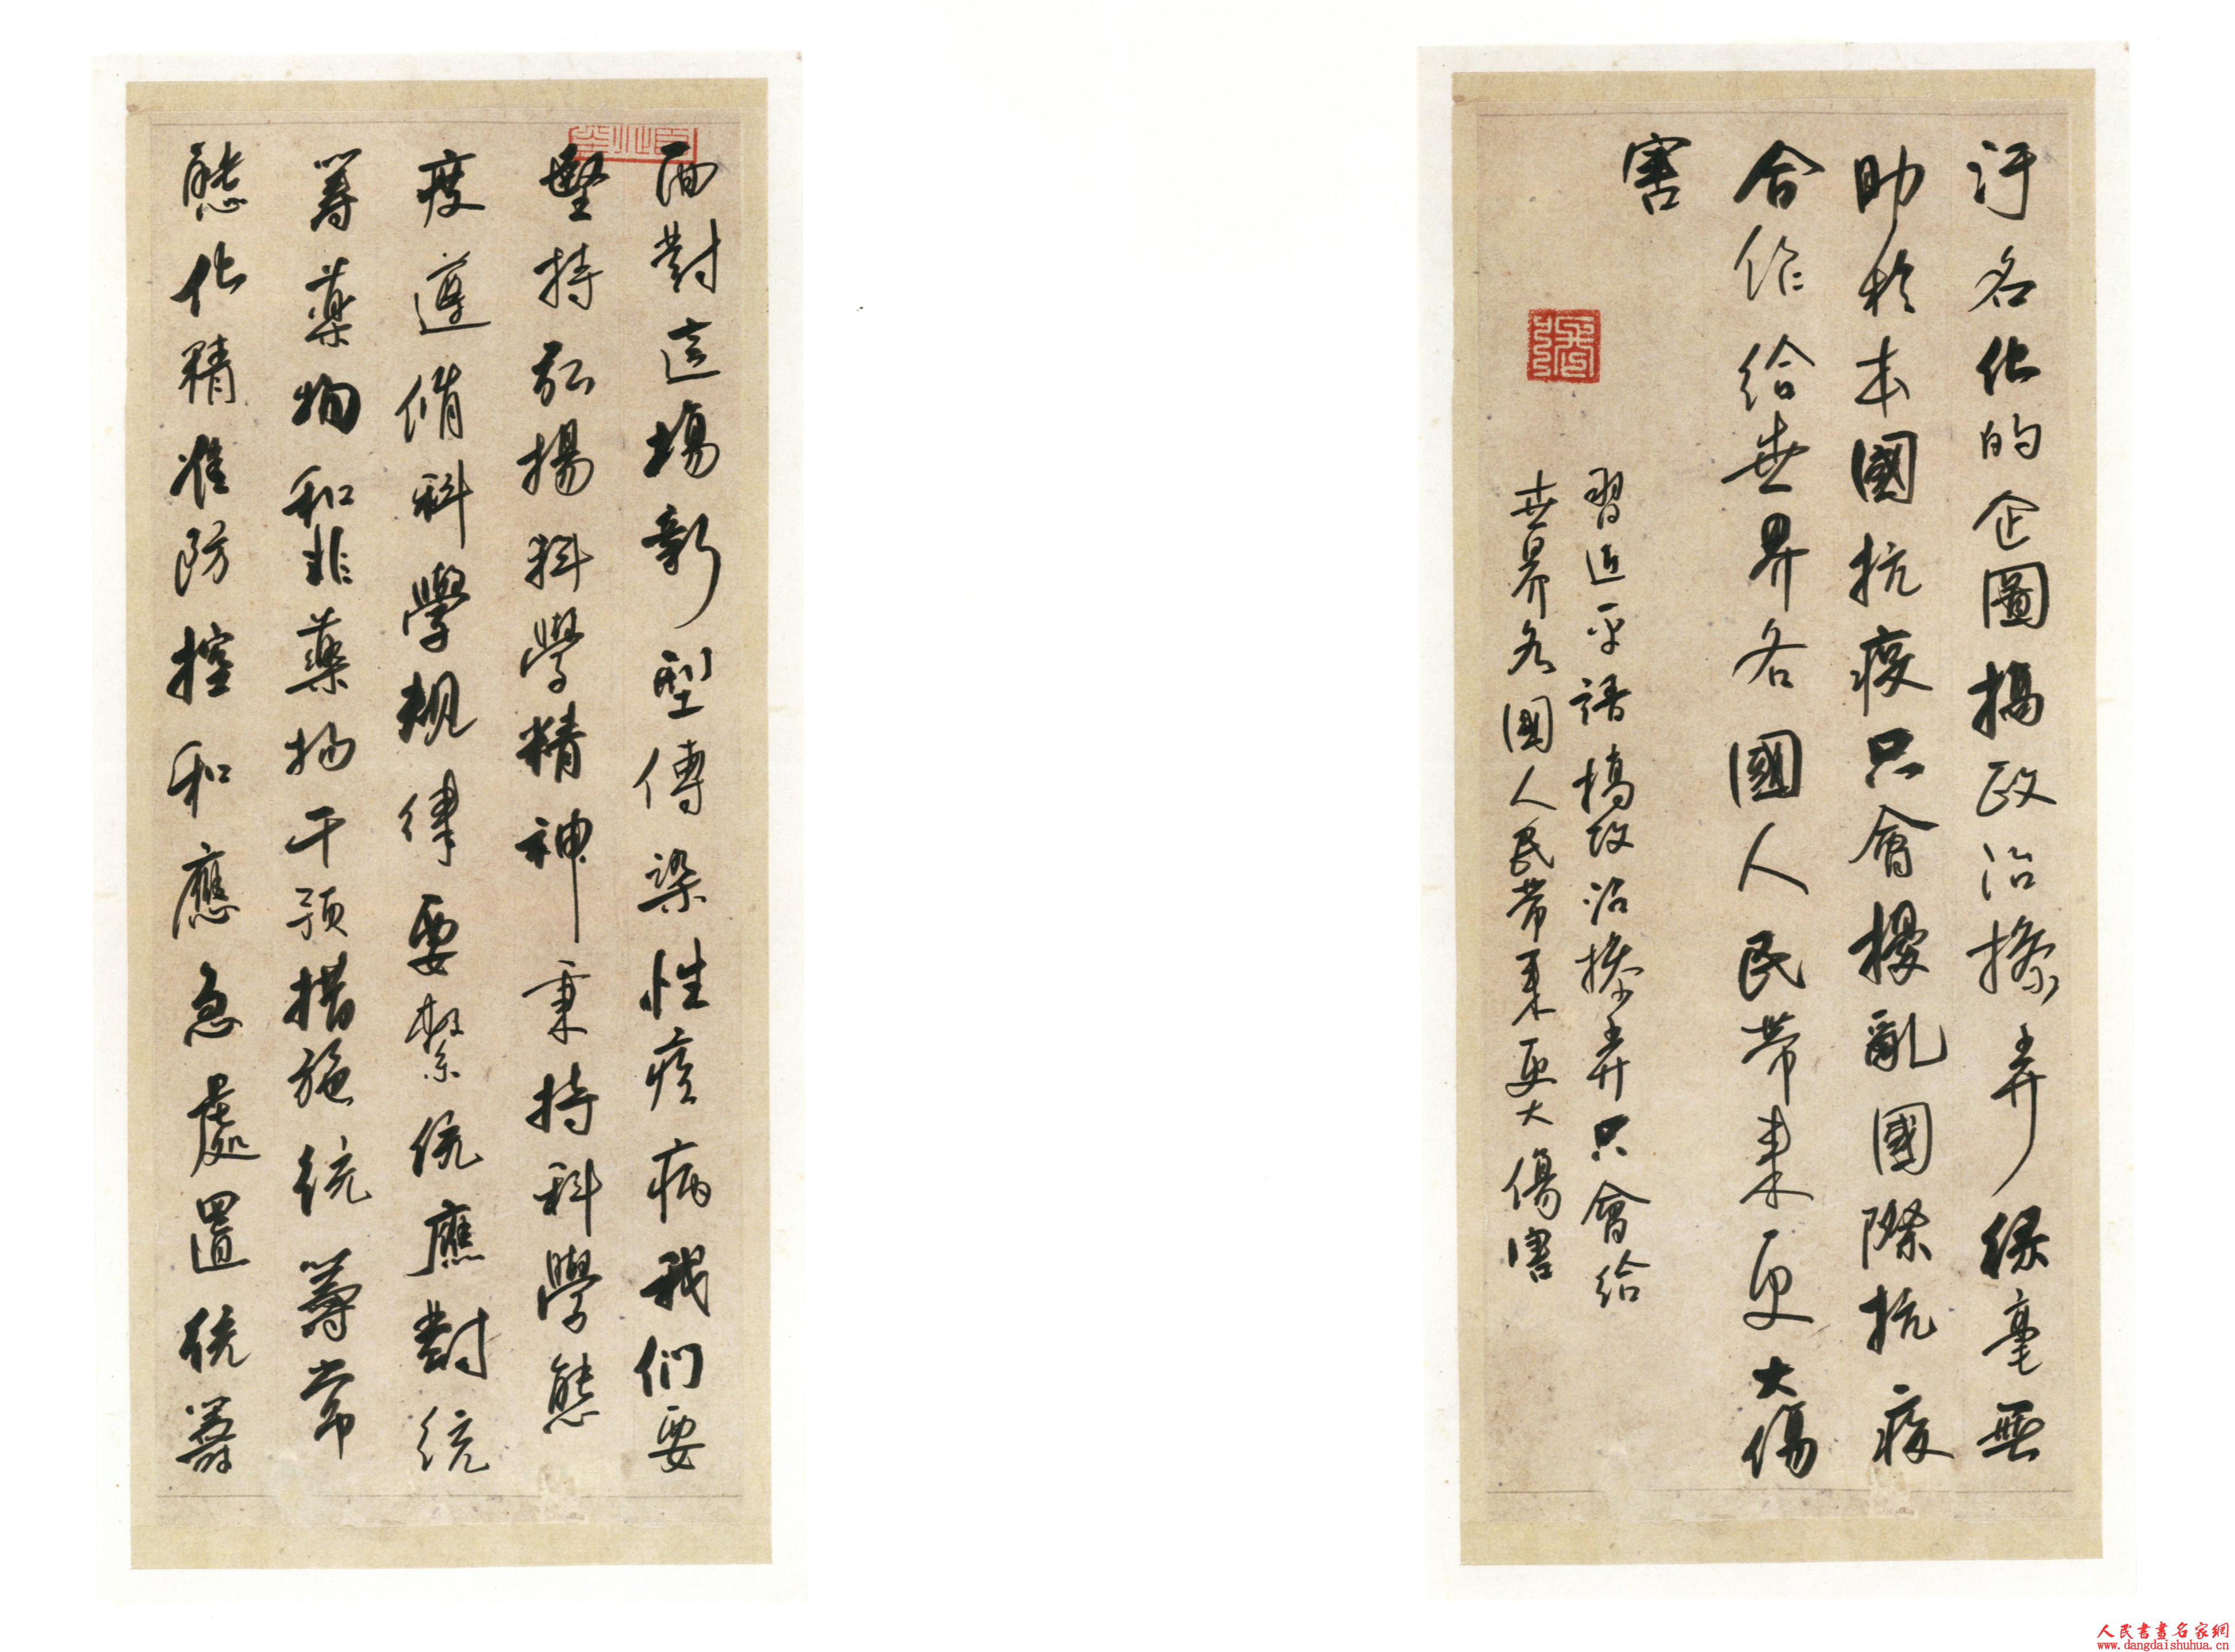 汙名化的企圖搞政治操弄絲毫無
助於本國抗疫只會擾亂國際抗疫
合作給世界各國人民帶來更大傷
害
習近平語搞政治操弄只會給
世界各國人民帶來更大傷害
面對這場新型傳染性疾病我们要
堅持弘揚科學精神秉持科學態
度遵循科學規律要繫統應對統
籌藥物和非藥物干預措施统籌常
態化精准防控和應急處置统籌
人民書畫名家網
www.dangdaishuhua.cn